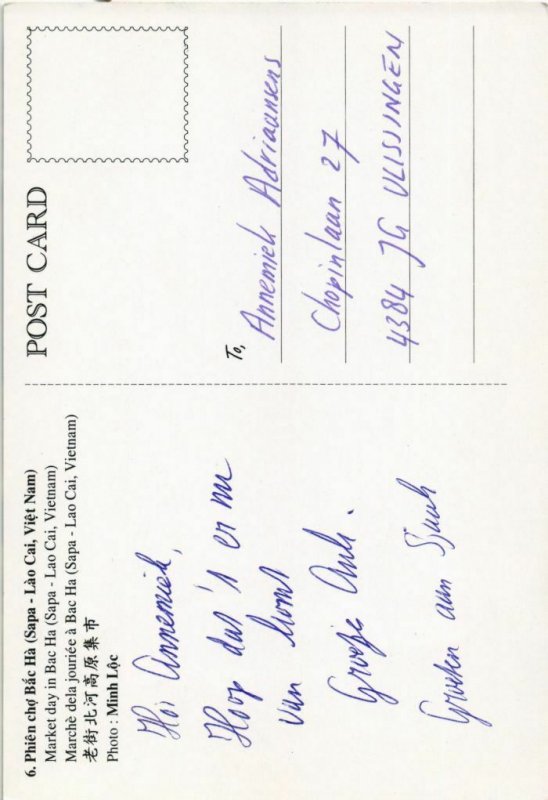 6. Phiên chợ Bắc Hà (Sapa - Lào Cai, Việt Nam)
Market day in Bac Ha (Sapa - Lao Cai, Vietnam)
Marchè dela jouriée à Bac Ha (Sapa - Lao Cai, Vietnam)
老街北河高原集市
Photo : Minh Lộc
Hoi Annemiek,
Hoop das's er nu
van komt
Groetje Anh.
Groeten aan Sjuuk
POST CARD
To,
Annemiek Adriaansens
Chopinlaan 27
4384 JG VLISSINGEN